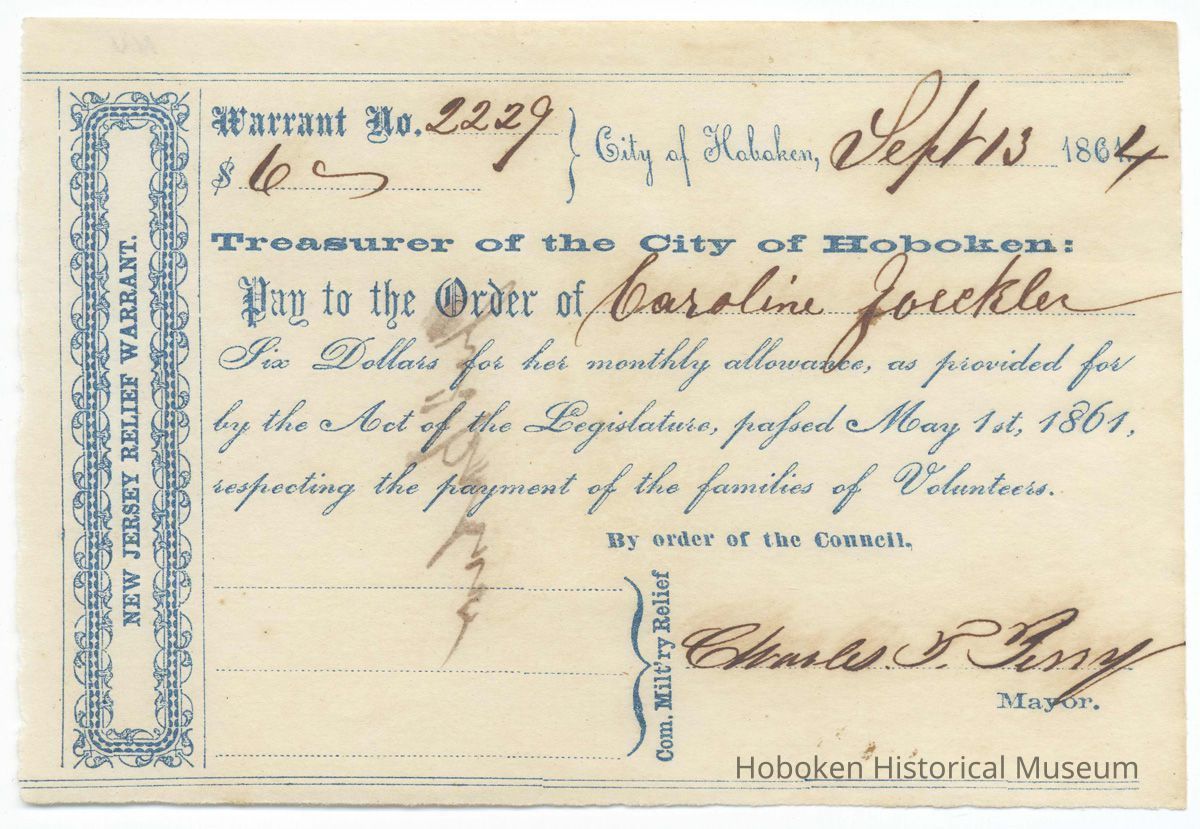 NEW JERSEY RELIEF WARRANT.
Warrant No. 2229
$ 6
City of Hoboken, Sept 13 1864
Treasurer of the City of Hoboken:
Pay to the Order of Caroline Joeckler
Six Dollars for her monthly allowance, as provided for
by the Act of the Legislature, paſsed May 1st, 1861,
respecting the payment of the families of Volunteers.
By order of the Council.
Com. Milt'ry Relief
Charles T. Perry
Mayor.
Hoboken Historical Museum